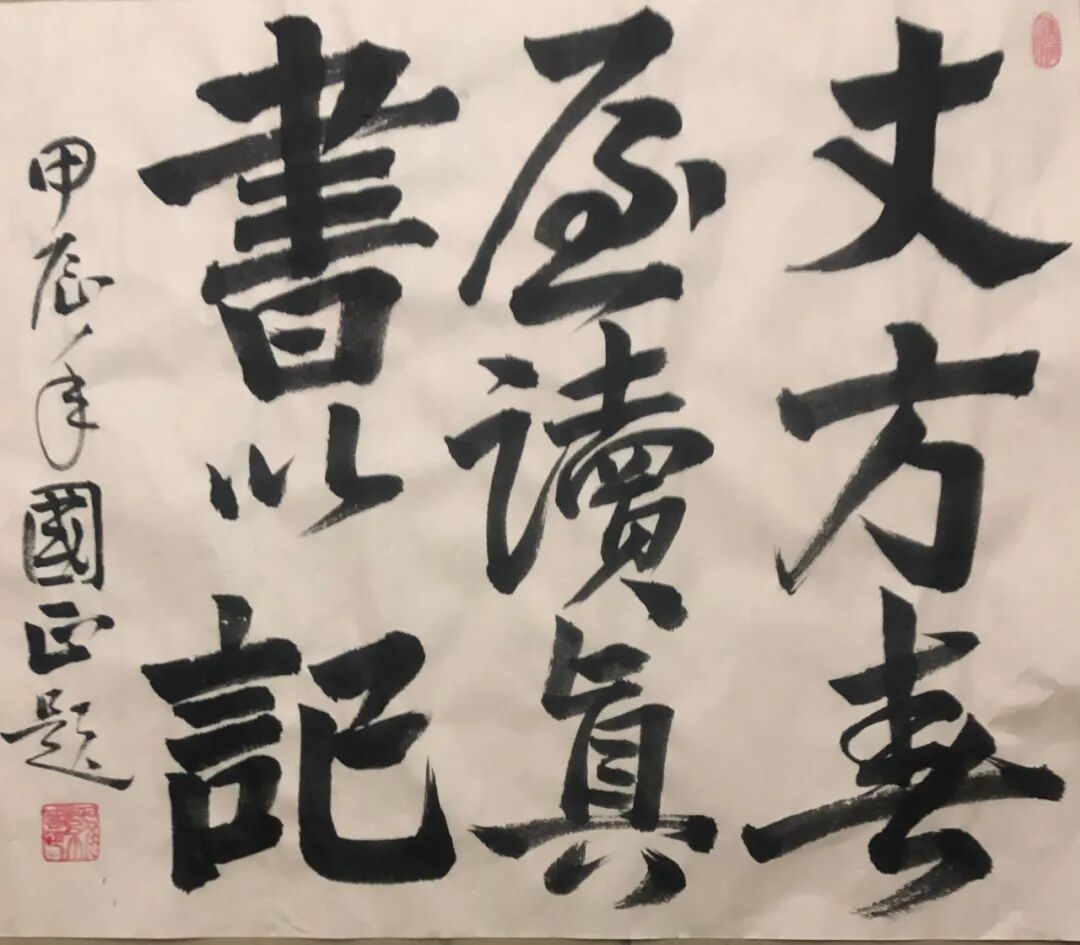 丈方書
屋讀真
書以記
甲辰年國正題